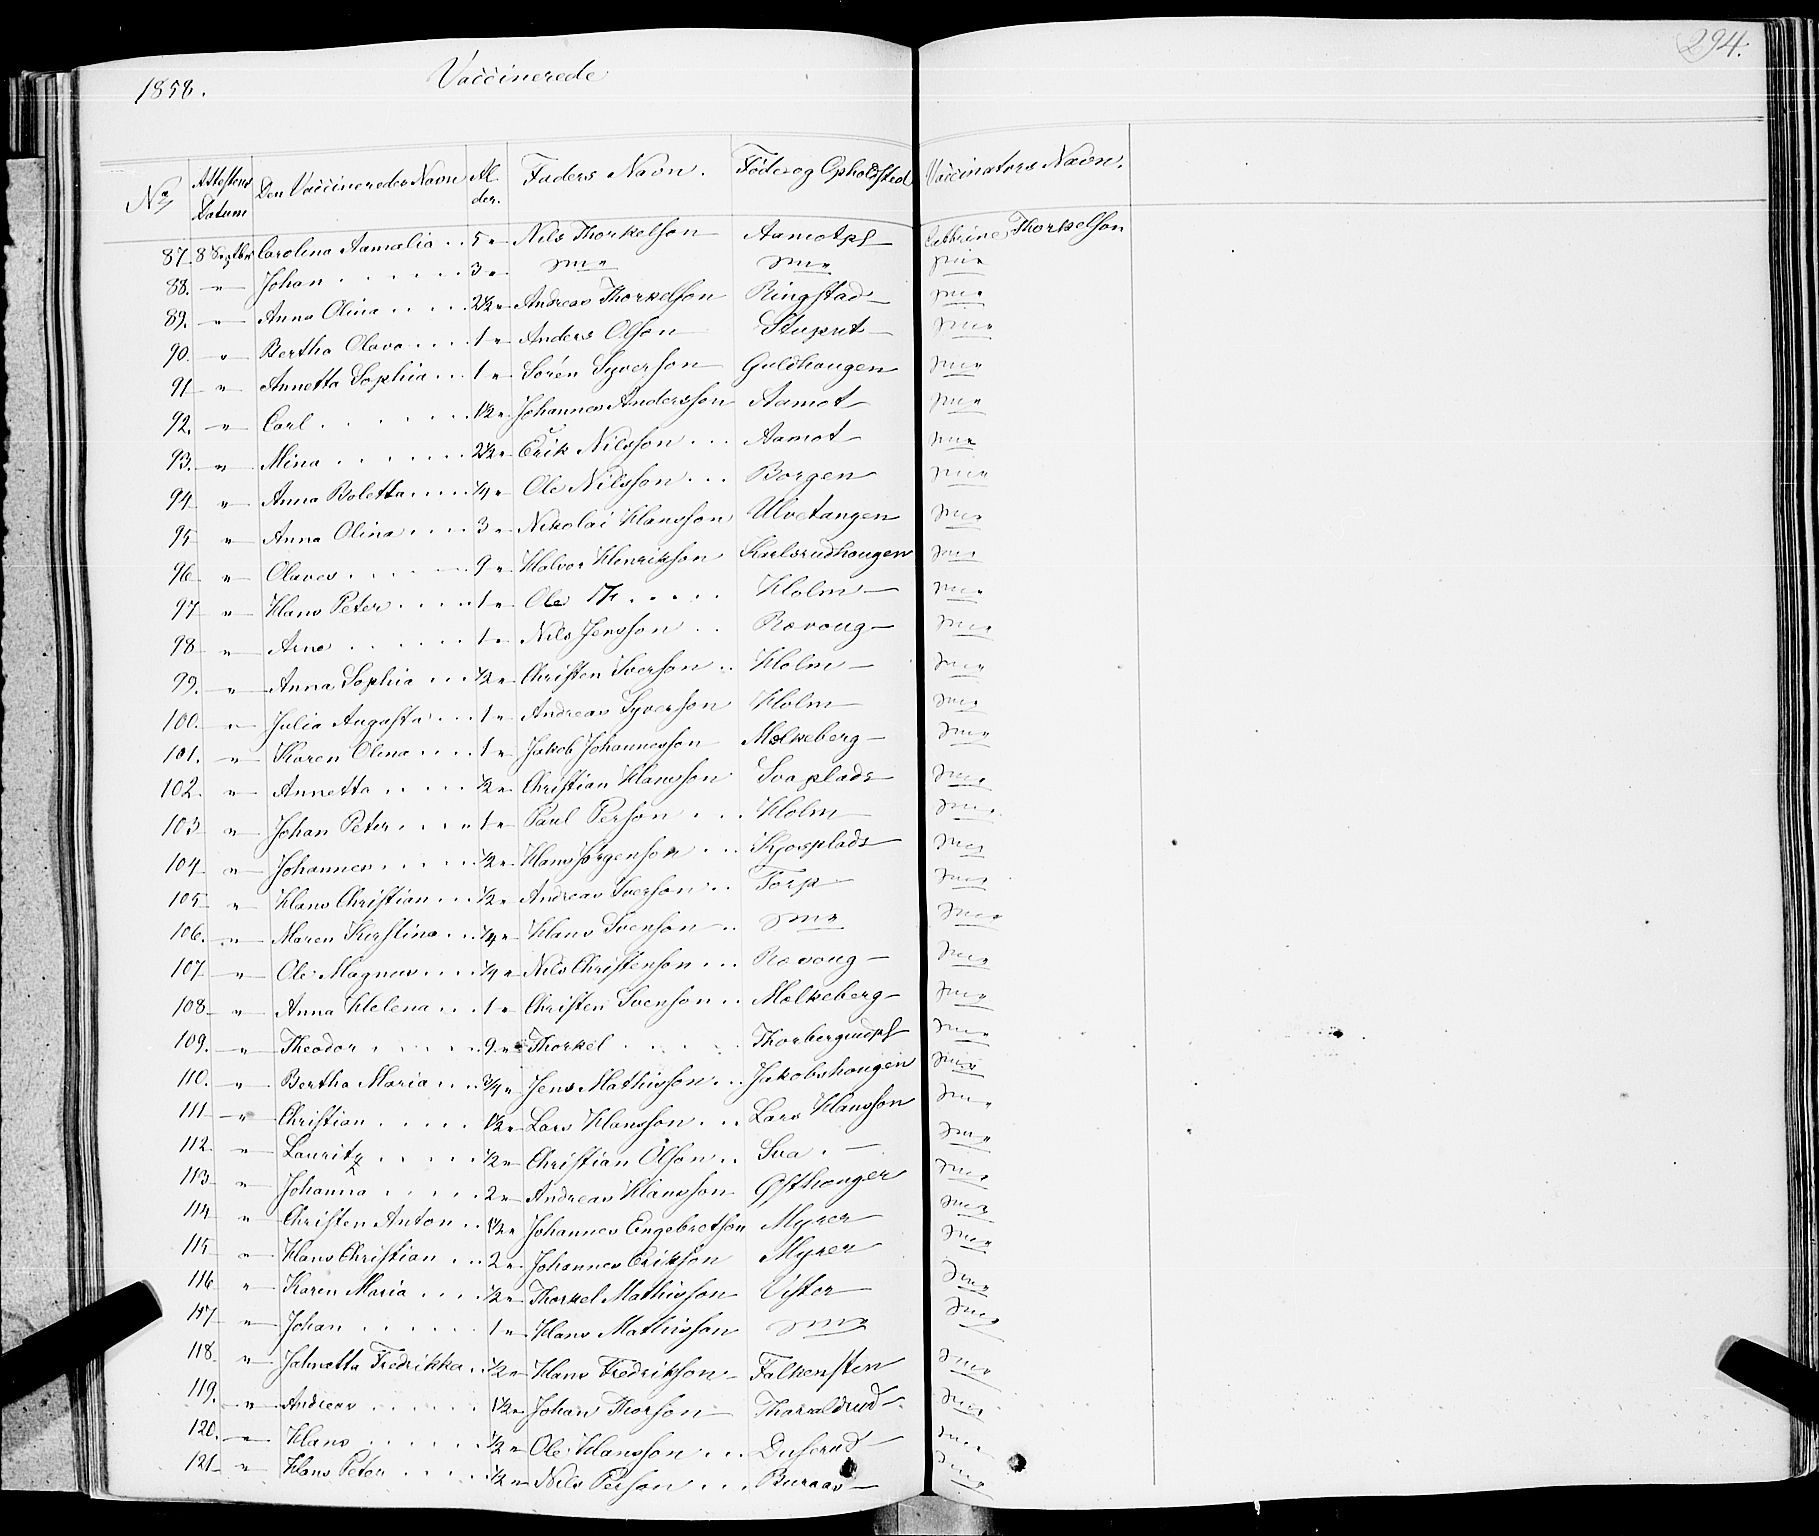 294.
1858. Vaccinerede
No Attestens Datum Den Vaccineredes Navn Alder. Faders Navn. Føde og Opholdsted Vaccinators Navn.
87 8 Septbr Carolina Aamalia .. 5 " Nils Thorkelson Aamotpl Cathrine Thorkelson
88. " Johan ...... 3 " Do Do Do
89. " Anna Olina .... 2½ " Andreas Thorkelson Ringstad Do
90. " Bertha Olava .... 1 " Anders Olson Stuprut Do
91 " Annetta Sophia ... 1 " Sören Syverson Guldhaugen Do
92. " Carl ...... 1½ " Johannes Andersson Aamot Do
93. " Mina ....... 2½ " Erik Nilsson ... Aamot Do
94 " Anna Boletta ..... ¼ " Ole Nilsson ... Borgen Do
95 " Anna Olina .... 3 " Nikolai Hansson Ulvetangen Do
96 " Olaves ..... 9 " Halvor Henrikson Karlsrudhaugen Do
97 " Hans Peter ..... 1 " Ole ..... Holm Do
98 " Arne ...... 1 " Nils Jensson .. Ravoug Do
99. " Anna Sophia ... ½ " Christen Iverson .. Holm Do
100. " Julia Augusta ... 1 " Andreas Syverson Holm Do
101. " Karen Olina .... 1 " Jakob Johannesson Melkeberg Do
102. " Annetta ..... ½ " Christian Hansson Svaplads Do
103 " Johan Peter .... 1 " Paul Person ... Holm Do
104 " Johannes ..... ½ " Hans Jörgenson ... Kjosplads Do
105 " Hans Christian ... ½ " Andreas Iverson .. Torp Do
106. " Maren Kirstina .. ¼ " Hans Svenson .. Do Do
107 " Ole Magnus .... ¼ " Nils Christenson ... Ravoug Do
108 " Anna Helena ... 1 " Christen Svenson .. Melkeberg Do
109. " Theodor ..... 9 " Thorkel ..... Thorbergrudpl Do
110. " Bertha Maria ... ¾ " Jens Mathisson ... Jakobshaugen Do
111 " Christian ..... 1½ " Lars Hansson ... Lars Hansson Do
112. " Lauritz ..... ½ " Christian Olson .. Sva . Do
113 " Johanna ..... 2 " Andreas Hansson Østhauger Do
114 " Christen Anton .. 1½ " Johannes Engebretson Myrer Do
115 " Hans Christian ... 2 " Johannes Erikson Myrer Do
116 " Karen Maria .... ½ " Thorkel Mathisson Vistor Do
117 " Johan ...... 1 " Hans Mathisson Do Do
118. " Jahnetta Fredrikka .. ½ " Hans Fredrikson Falkensten Do
119. " Andreas ...... 1½ " Johan Thorson Tharaldrud Do
120. " Hans ...... ½ " Ole Hansson ... Duserud Do
121 " Hans Peter .... ½ " Nils Person ... Buraas Do